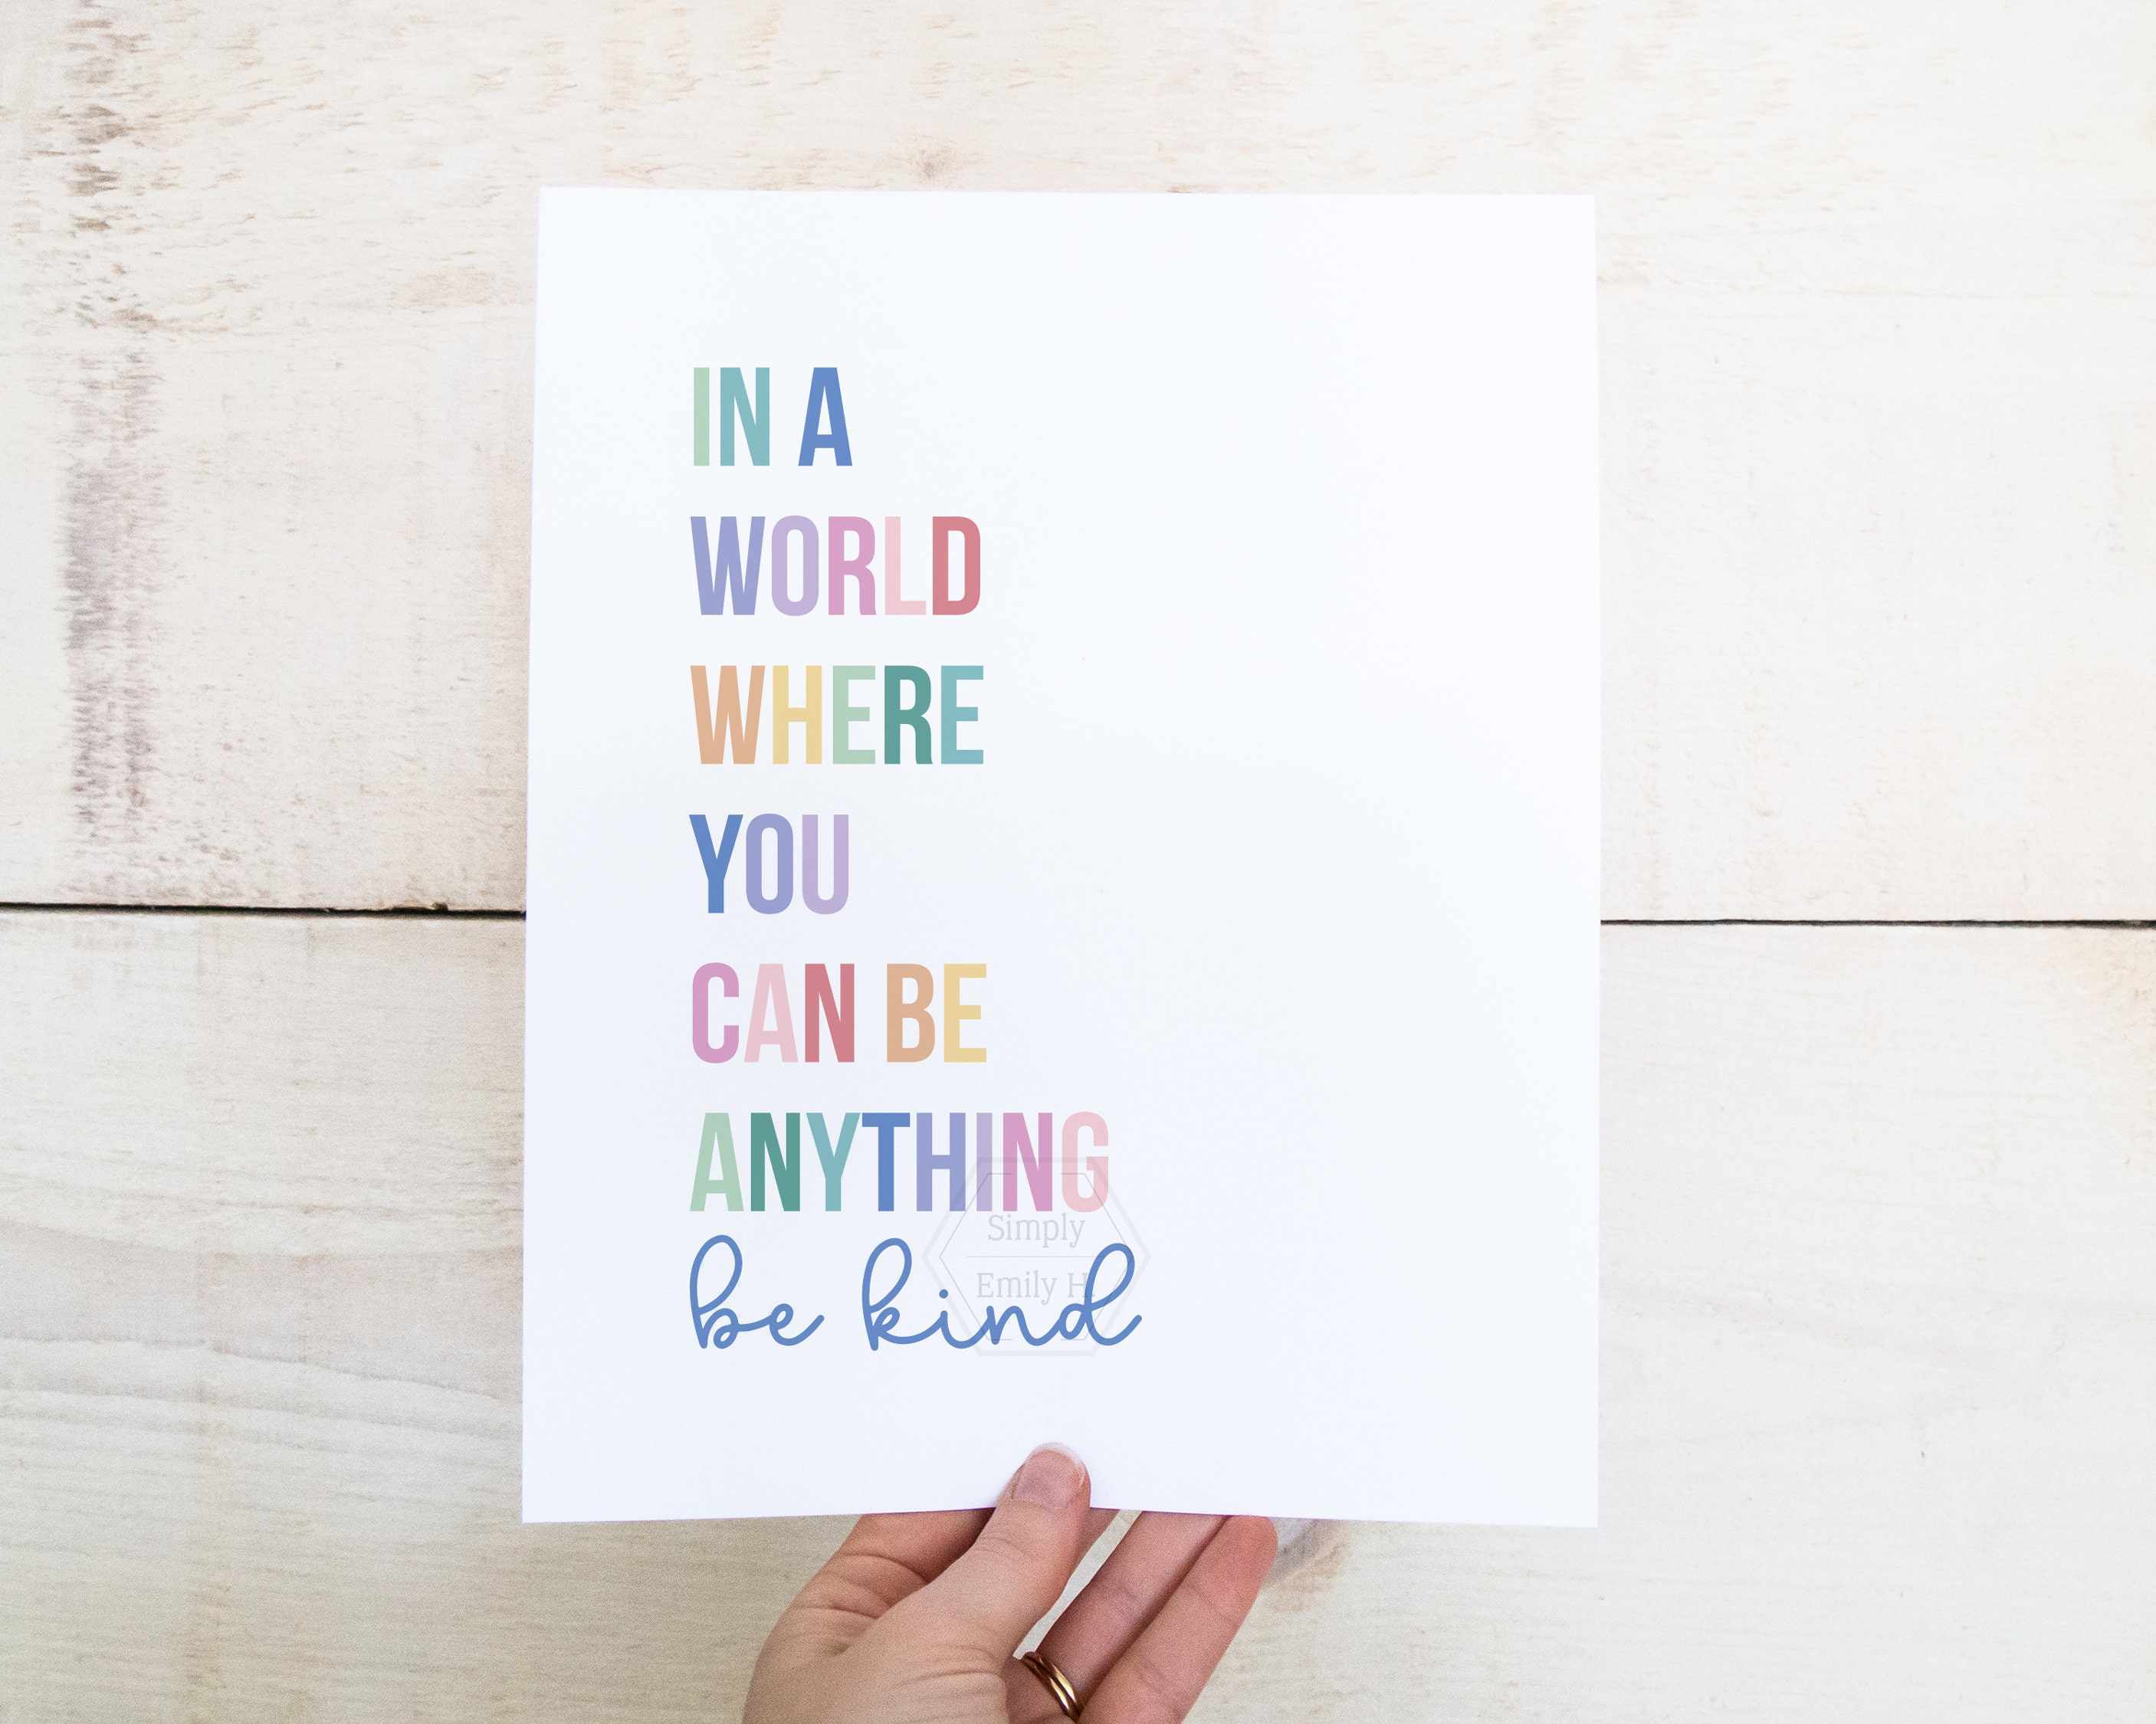 IN A
WORLD
WHERE
YOU
CAN BE
ANYTHING
be kind
Simply
Emily H.